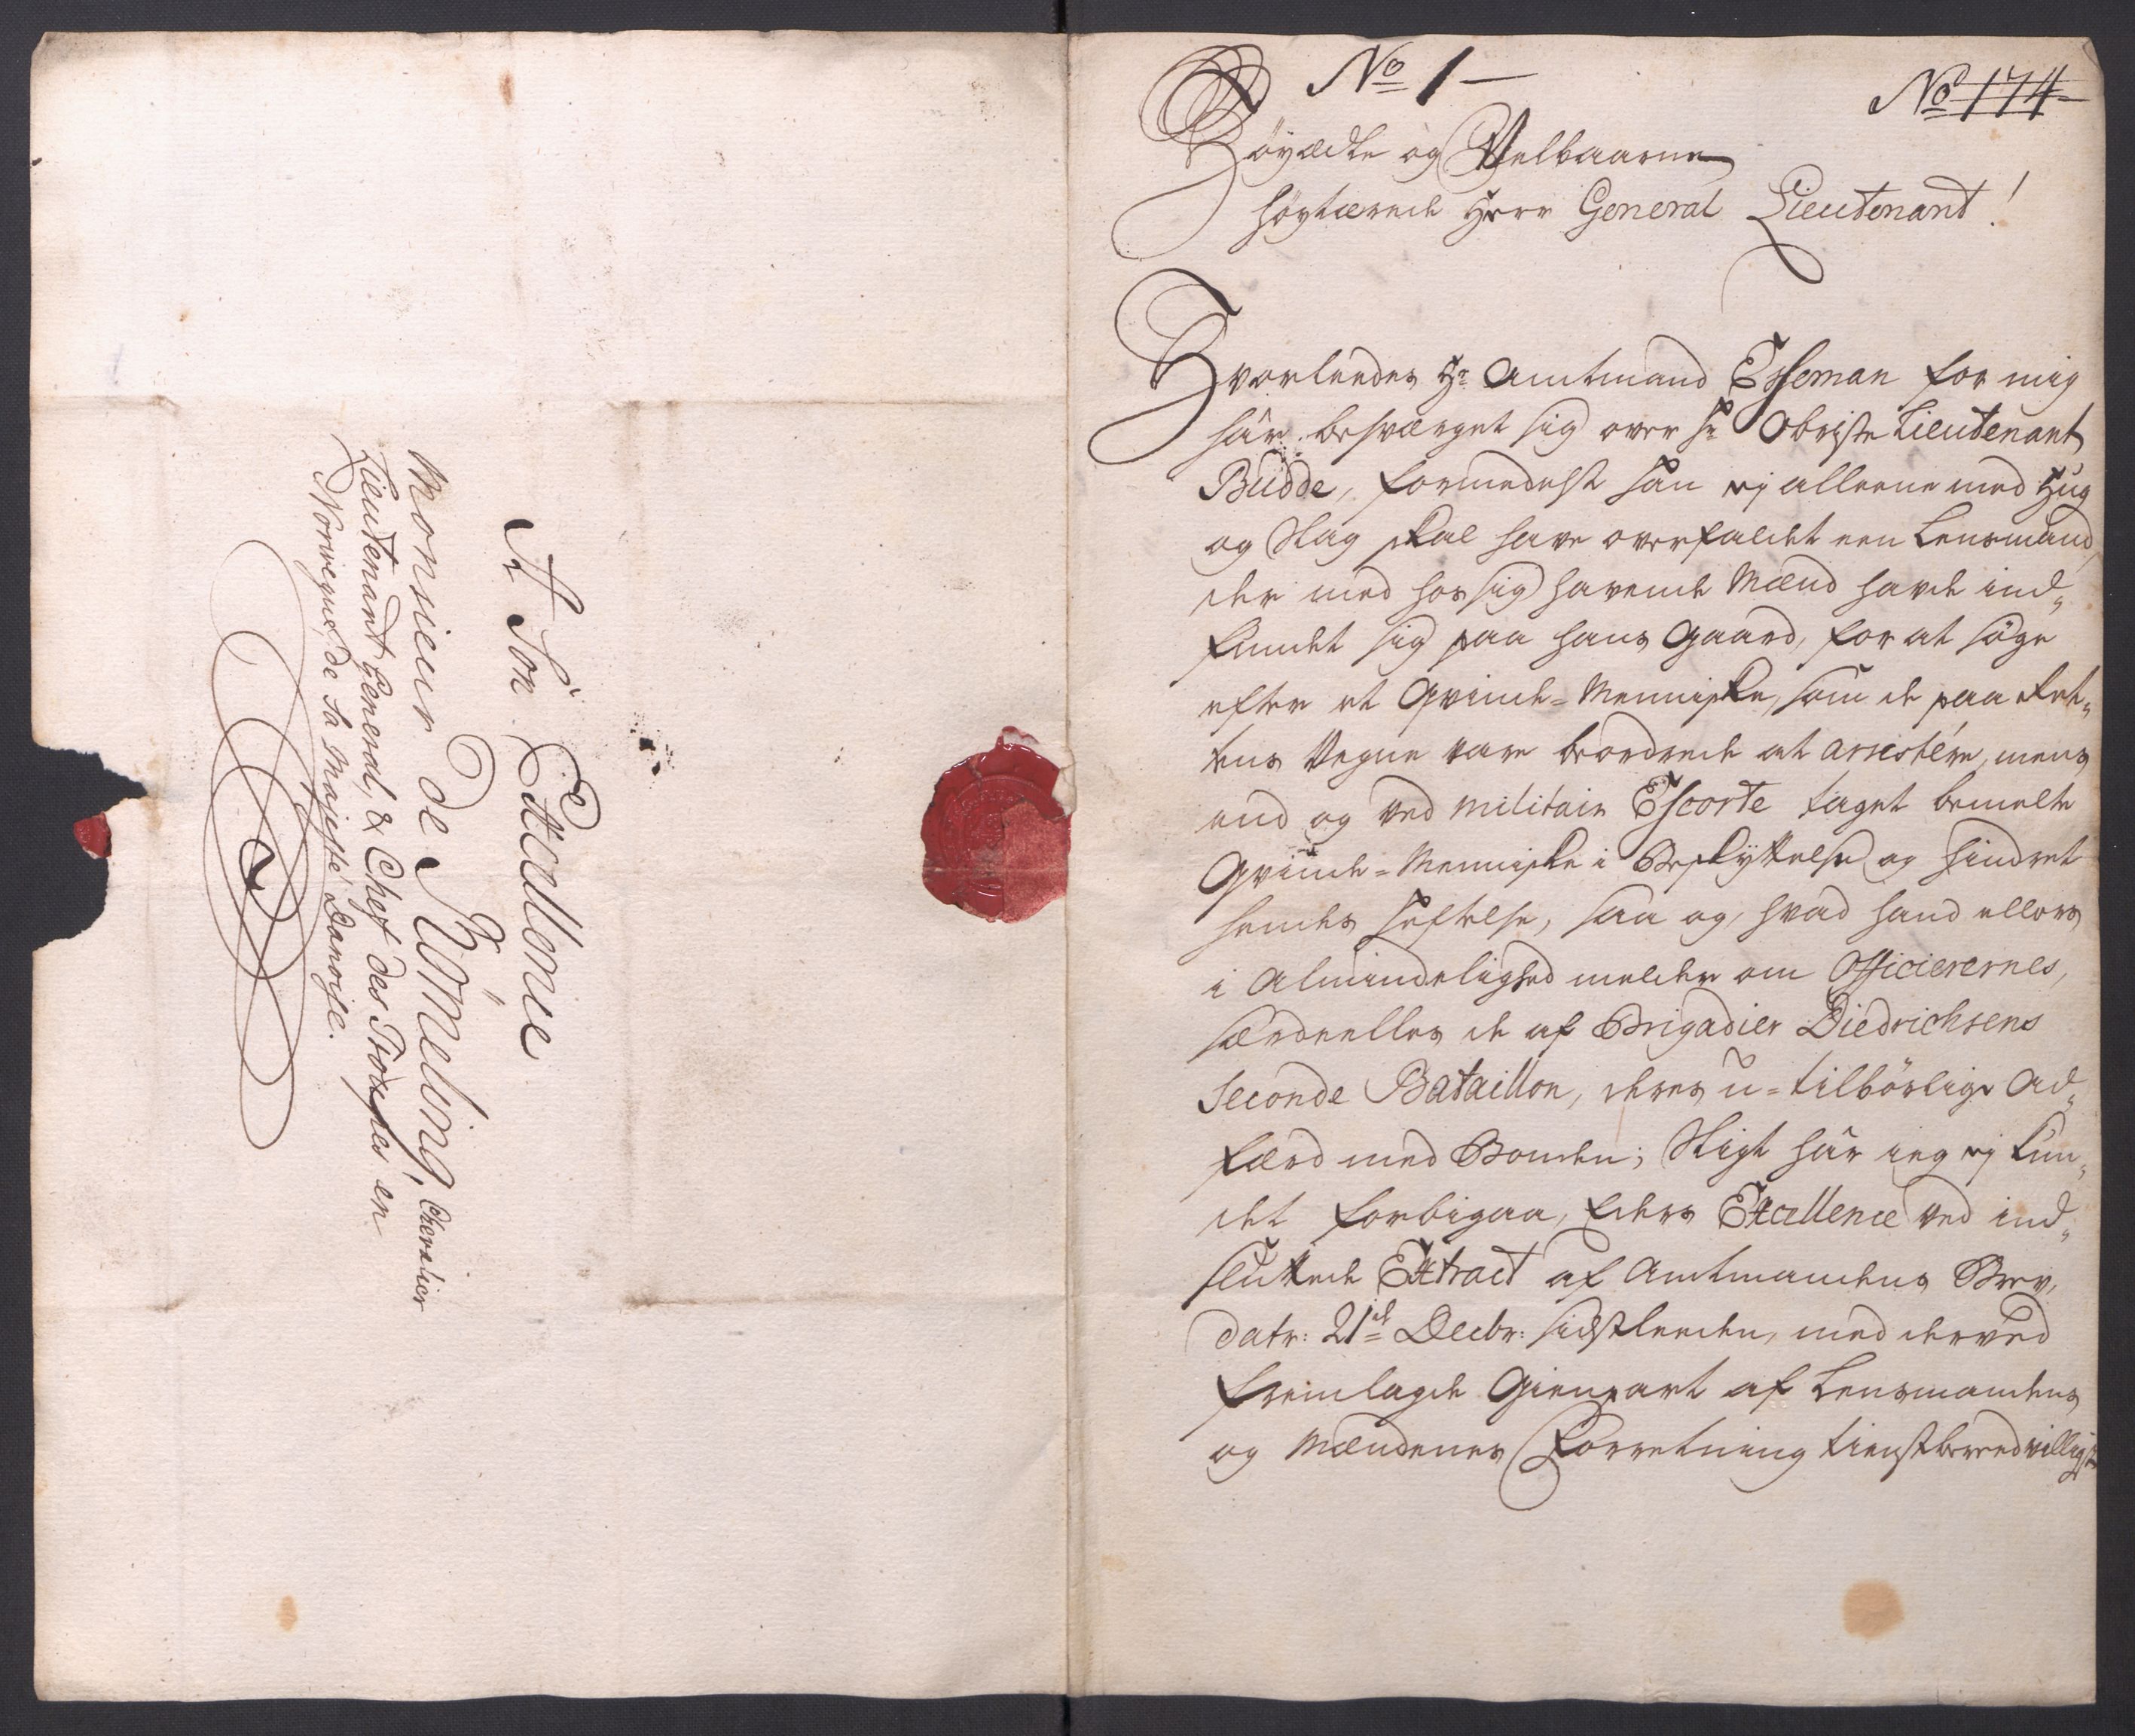 A Son Excellence
Monsieur de Römeling, Chevalier
Lieutenant General, & Chef des Trouppes en
Norwegue, de Sa Majesté Danoise.
No 1 —
No 174
Höyædle og Velbaarne
Høystærede Herr General Lieutenant!
Hvorleedes Hr Amtmand Esseman for mig
har besværget sig over Hr Obriste Lieutenant
Budde, formedelst han ej alleene med Hug
og Slag skal have overfaldet een Lensmand,
der med hos sig havende Mænd havde ind„
fundet sig paa hans Gaard, for at søge
efter et Qvinde-Menniske, som de paa Ret„
tens Vegne vare beordrede at arrestére, mens
end og ved militair Escorte taget bemelte
Qvinde-Menniske i Beskyttelse og hindret
hendes Heftelse, saa og, hvad hand ellers
i Almindelighed melder om Officierernes,
særdeelles de af Brigadier Diedrichsens
Seconde Bataillon, deres u-tilbörlige Ad„
færd med Bonden; Sligt har ieg ej kun„
det forbigaa, Eders Excellence ved ind„
sluttede Extract af Amtmandens Brev,
datr: 21de Decbr: sidstleeden, med derved
fremlagde Gienpart af Lensmandens
og Mændenes Forretning tienstbereedvilligst